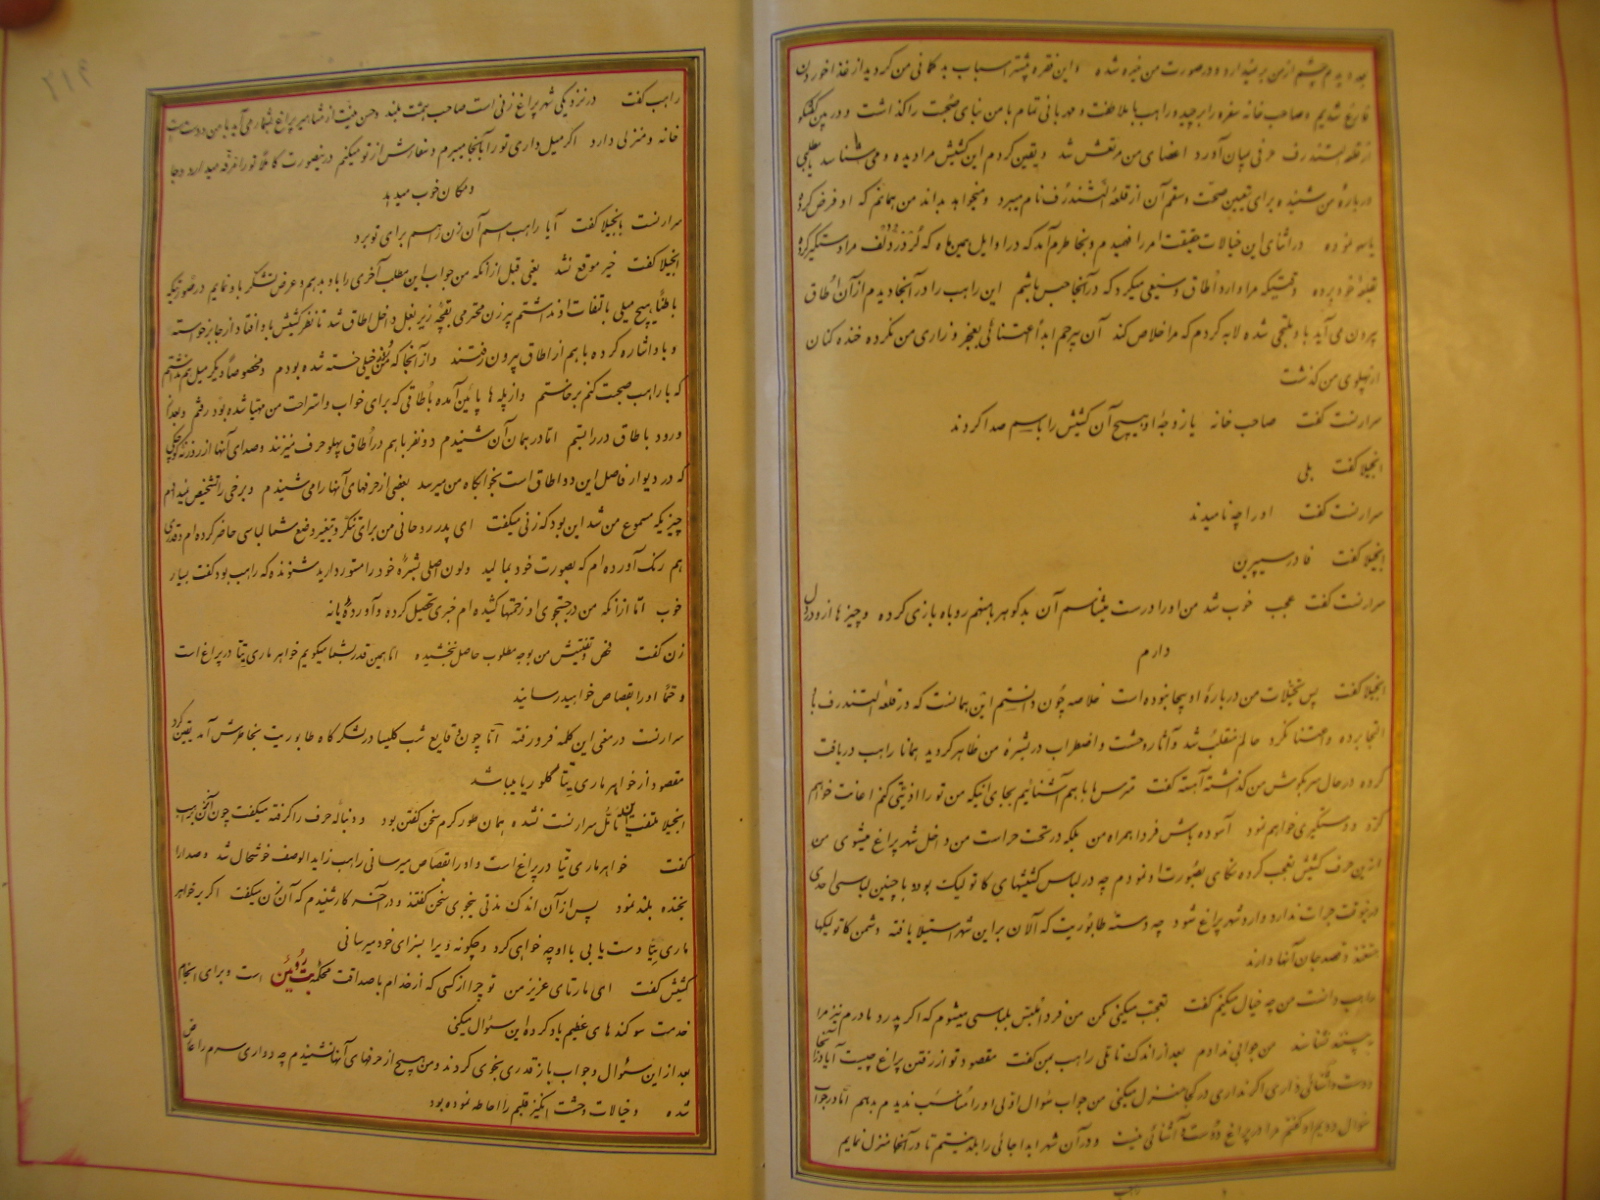 بعد دیدم چشم از من برنمیدارد و در صورت من خیره شده و این فقره بیشتر اسباب بدگمانی من گردید از غذا خوردن
فارغ شدیم و صاحب خانه سفره را برچید و راهب با ملاطفت و مهربانی تمام با من بنای صحبت را گذاشت و در بین گفتگو
از قلعه التندرف حرفی بمیان آورد اعضای من مرتعش شد و یقین کردم این کشیش مرا دیده و می شناسد یا مطلبی
درباره من شنیده برای تعیین صحت و سقم آن از قلعه التندرف نام میبرد و میخواهد بداند من همانم که او فرض کرده
یا سهو نموده در اثنای این خیالات حقیقت امر را فهمیدم و بخاطرم آمد که در اوایل همین ماه که مرا دستگیر کرده
بقلعه خود برده وقتیکه مرا وارد اطاق وسیعی میکرد که در آنجا حبس باشم این راهب را در آنجا دیدم از آن اطاق
بیرون می آید باو ملتجی شده لابه کردم که مرا خلاص کند آن بیرحم ابداً اعتنائی بعجز و زاری من نکرده خنده کنان
از پهلوی من گذشت
سرارنست گفت صاحب خانه یا زوجه او هیچ آن کشیش را باسم صدا کردند
انجیلا گفت بلی
سرارنست گفت او را چه نامیدند
انجیلا گفت فادر سیپرین
سرارنست گفت عجب خوب شد من او را درست میشناسم آن بدگوهر با منهم روباه بازی کرده و چیزها از او در دل
دارم
انجیلا گفت پس تخیلات من درباره او بیجا نبوده است خلاصه چون دانستم این همانست که در قلعه التندرف باو
التجا برده و اعتنا نکرد حالم منقلب شد و آثار وحشت و اضطراب در بشره من ظاهر گردید همانا راهب دریافت
کرده در حال سر بگوش من گذاشته آهسته گفت مترس ما با هم آشنائیم بجای آنیکه من تو را اذیتی کنم اعانت خواهم
کرد و دستگیری خواهم نمود آسوده باش فردا همراه من بلکه در تحت حراست من داخل شهر پراغ میشوی من
از این حرف کشیش تعجب کرده نگاهی بصورت او نمودم چه در لباس کشیشهای کاتولیک بوده با چنین لباسی احدی
در اینوقت جرات ندارد وارد شهر پراغ شود چه دسته طابوریت که الان بر این شهر استیلا یافته دشمن کاتولیکها
هستند و قصد جان آنها دارند
راهب دانست من چه خیال میکنم گفت تعجب میکنی مکن من فردا ملبس بلباسی میشوم که اگر پدر و مادرم نیز مرا
ببینند نشناسند من جوابی ندادم بعد از اندک تاملی راهب بمن گفت مقصود تو از رفتن پراغ چیست آیا در آنجا
دوست و آشنائی داری اگر نداری در کجا منزل میکنی من جواب سوال اولی او را مناسب ندیدم بدهم اما در جواب
سوال دویم او گفتم مرا در پراغ دوست و آشنائی نیست و در آن شهر ابدا جائی را بلد نیستم تا در آنجا منزل نمایم
راهب
۲۱۴
راهب گفت در نزدیکی شهر پراغ زنی است صاحب همت بلند و حسن نیت از مشاهیر پراغ بشمار می آید با من دوست است
خانه و منزلی دارد اگر میل داری تو را بآنجا میبرم و سفارش از تو میکنم در اینصورت کاملاً تو را مرفه میدارد و جا
و مکان خوب میدهد
سرارنست بانجیلا گفت آیا راهب اسم آن زن را هم برای تو برد
انجیلا گفت خیر موقع نشد یعنی قبل از آنکه من جواب این مطلب آخری را باو بدهم و عرض تشکر باو نمایم در صورتیکه
باطناً هیچ میلی بالتفات او نداشتم پیرزن محترمی بقچه زیر بغل داخل اطاق شد تا نظر کشیش باو افتاد از جا برخواسته
و باو اشاره کرده با هم از اطاق بیرون رفتند و از آنجا که من خیلی خسته شده بودم و مخصوصاً دیگر میل هم نداشتم
که با راهب صحبت کنم برخاستم و از پله ها پائین آمده باطاقی که برای خواب و استراحت من مهیا شده بود رفتم و بعد از
ورود باطاق در را بستم اما در همان آن شنیدم دو نفر با هم در اطاق پهلو حرف میزنند و صدای آنها از روزنه کوچکی
که در دیوار فاصل این دو اطاق است بخوابگاه من میرسد بعضی از حرفهای آنها را می شنیدم و برخی را تشخیص نمیدادم
چیزیکه مسموع من شد این بود که زنی میگفت ای پدر روحانی من برای تنکر و تغییر وضع شما لباسی حاضر کرده ام و قدری
هم رنگ آورده ام که بصورت خود بمالید و لون اصلی بشره خود را مستور دارید شنونده که راهب بود گفت بسیار
خوب اما از آنکه من در جستجوی او زحمتها کشیده ام خبری تحصیل کرده و آورده یا نه
زن گفت فحص و تفتیش من بوجه مطلوب حاصل نبخشیده اما همین قدر بشما میگویم خواهر ماری تیتا در پراغ است
و حتماً او را بقصاص خواهید رسانید
سرارنست در معنی این کلمه فرو رفته اما چون وقایع شب کلیسا در لشگرگاه طابوریت بخاطرش آمد یقین کرد
مقصود از خواهر ماری تیتا گلوریا میباشد
انجیلا ملتفت این تامل سرارنست نشده همان طور گرم سخن گفتن بود و دنباله حرف را گرفته میگفت چون آن زن براهب
گفت خواهر ماری تیتا در پراغ است و او را بقصاص میرسانی راهب زاید الوصف خوشحال شد و صدا را
بخنده بلند نمود پس از آن اندک مدتی بنجوی سخن گفتند و در آخر کار شنیدم که آن زن میگفت اگر بخواهر
ماری تیتا دست یابی با او چه خواهی کرد و چگونه ویرا بسزای خود میرسانی
کشیش گفت ای مارتای عزیز من تو چرا از کسی که از خدام با صداقت محکمه بت روئین است و برای انجام
خدمت سوگندهای عظیم یاد کرده این سئوال میکنی
بعد از این سئوال و جواب باز قدری بنجوی کردند و من هیچ از حرفهای آنها نشنیدم چه دواری سرم را عارض
شده و خیالات وحشت انگیز قلبم را احاطه نموده بود